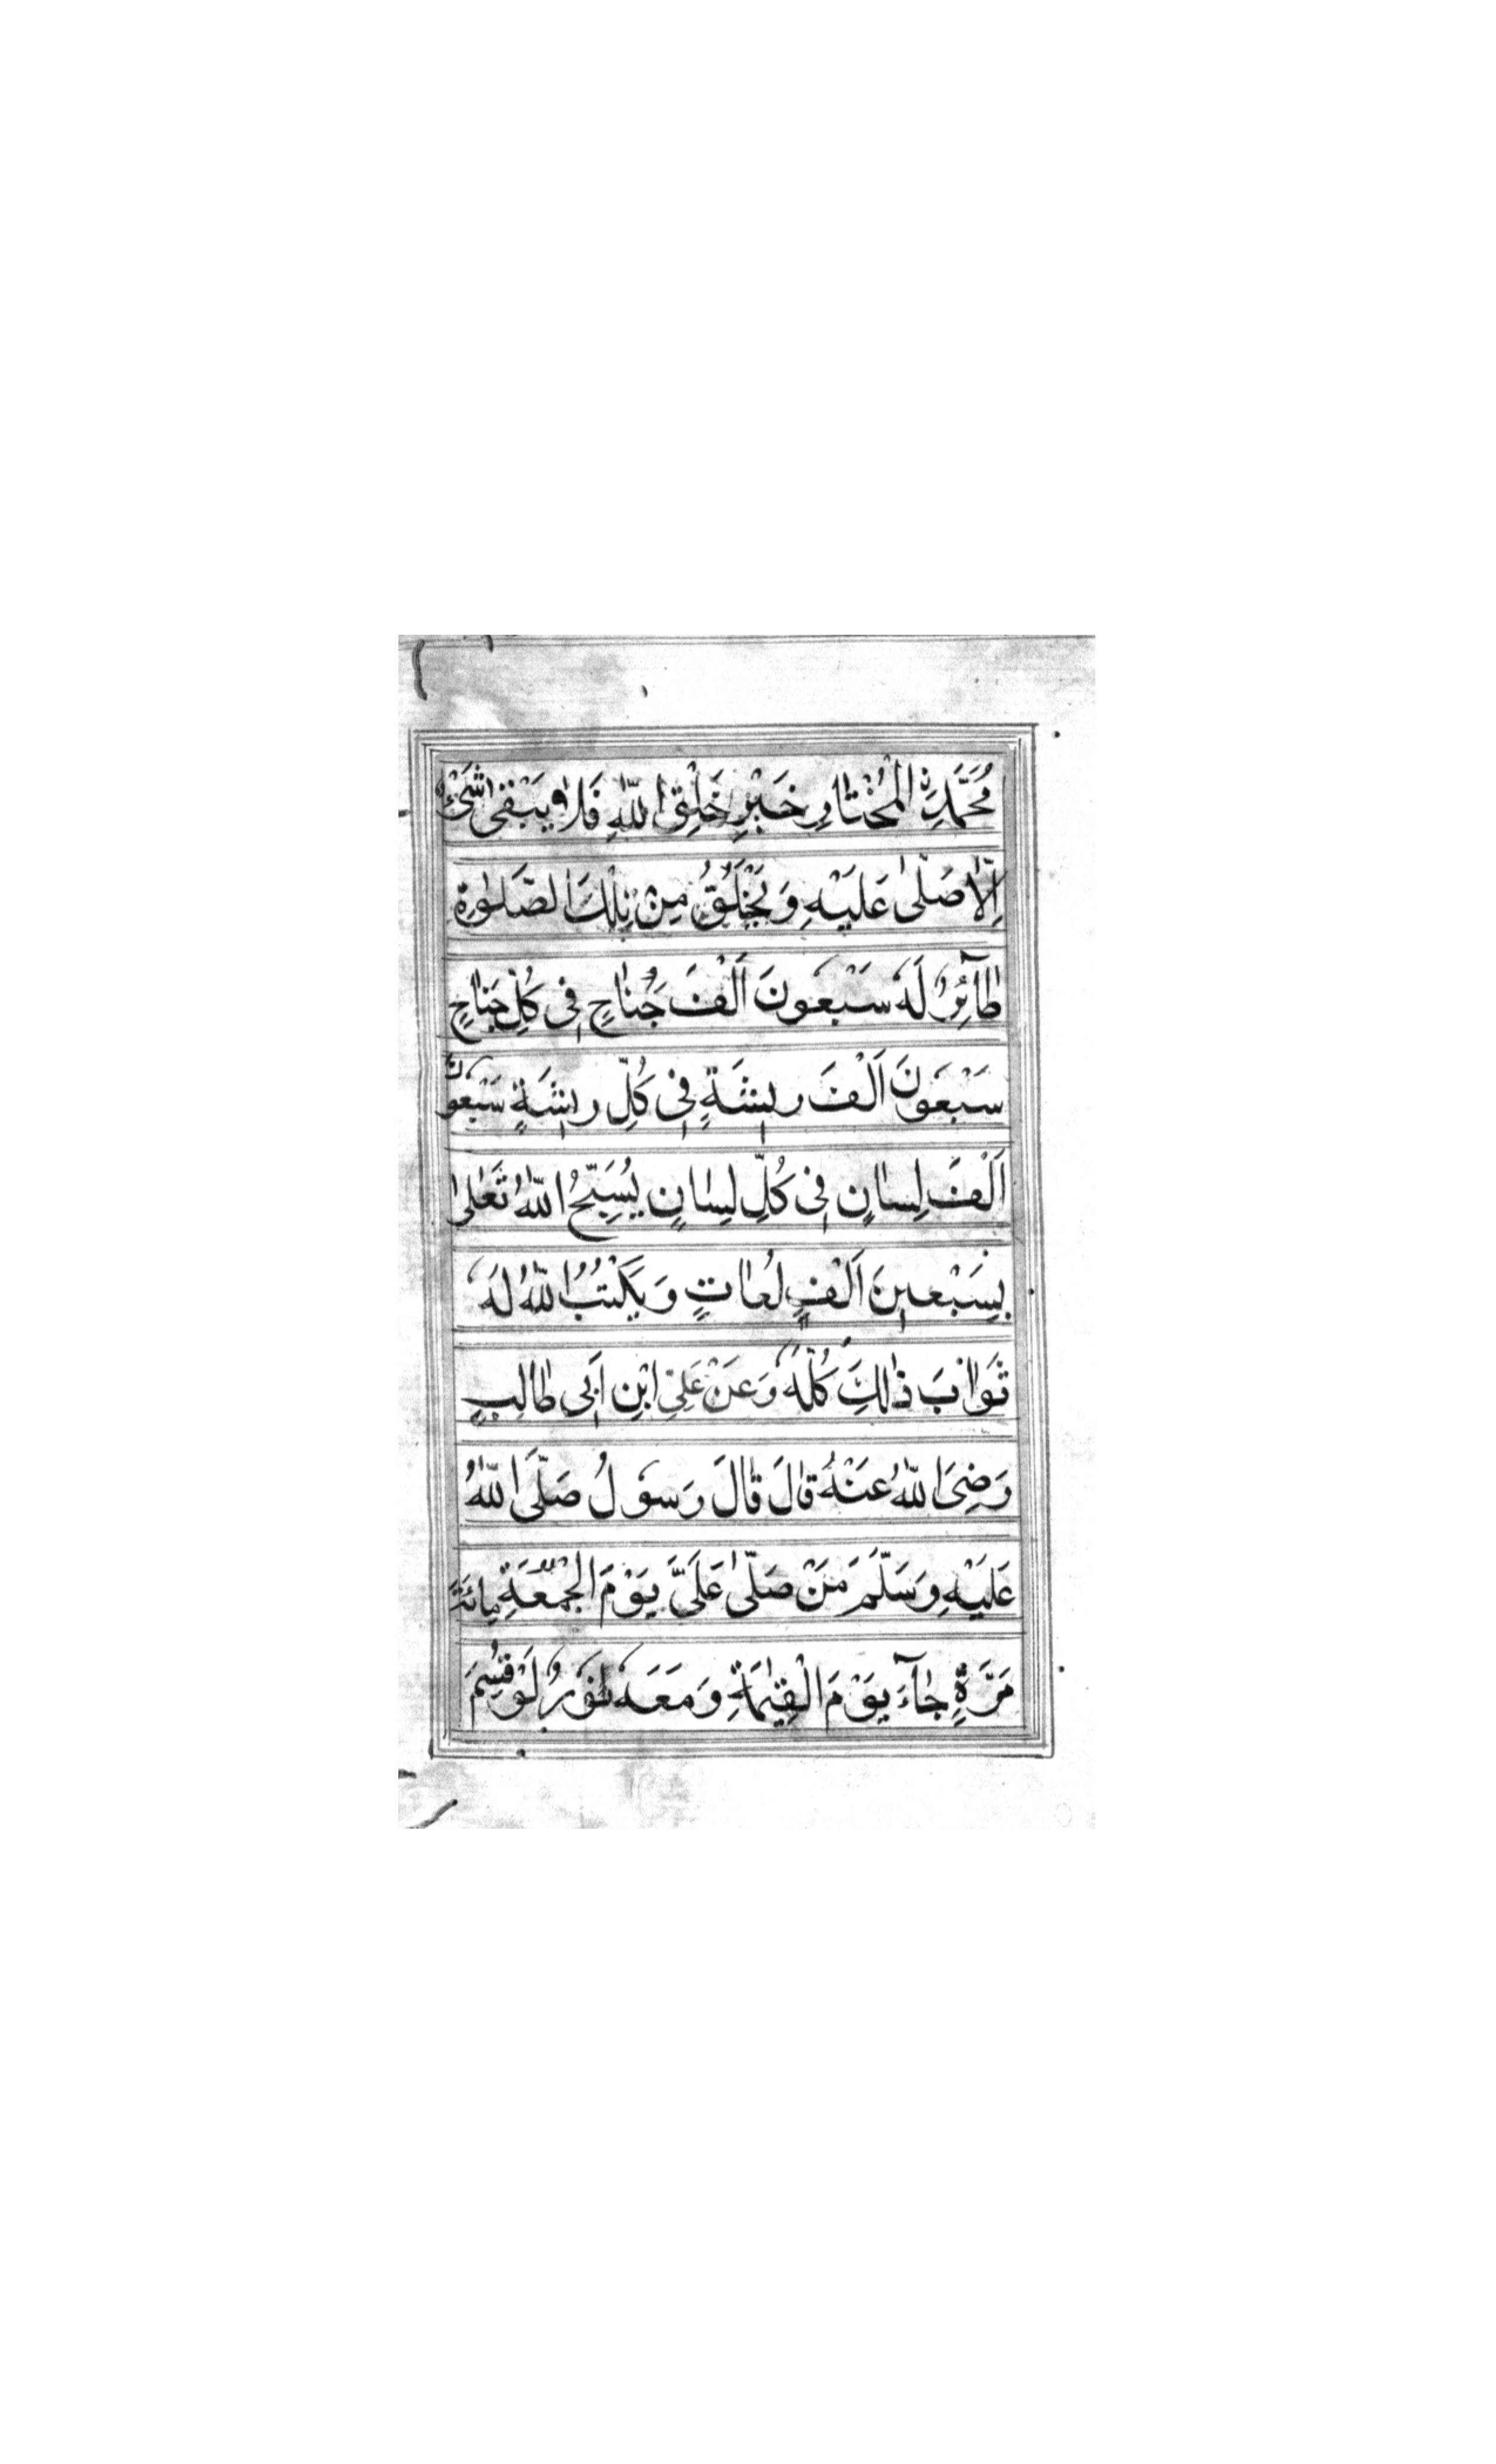 مُحَمَّدِنِ الْمُخْتَارِ خَيْرِ خَلْقِ اللّٰهِ فَلَا يَبْقٰى شَىْءٌ
اِلَّا صَلّٰى عَلَيْهِ وَ يَخْلُقُ مِنْ تِلْكَ الصَّلٰوةِ
طَآئِرٌ لَهُ سَبْعُونَ اَلْفَ جُنَاحٍ فِى كُلِّ جَنَاحٍ
سَبْعُونَ اَلْفَ رِيشَةٍ فِى كُلِّ رِيشَةٍ سَبْعُونَ
اَلْفَ لِسَانٍ فِى كُلِّ لِسَانٍ يُسَبِّحُ اللّٰهُ تَعَالٰى
بِسَبْعِينَ اَلْفٍ لُغَاتٍ وَ يَكْتُبُ اللّٰهُ لَهُ
ثَوَابَ ذٰلِكَ كُلِّهُ وَعَنْ عَلِىِّ ابْنِ اَبِى طَالِبٍ
رَضِىَ اللّٰهُ عَنْهُ قَالَ قَالَ رَسُولُ صَلَّى اللّٰهُ
عَلَيْهِ وَسَلَّمَ مَنْ صَلّٰى عَلَىَّ يَوْمَ الْجُمُعَةِ مِائَةَ
مَرَّةٍ جَآءَ يَوْمَ الْقِيٰمَةِ وَ مَعَهُ نُورٌ لَوْ قُسِمَ